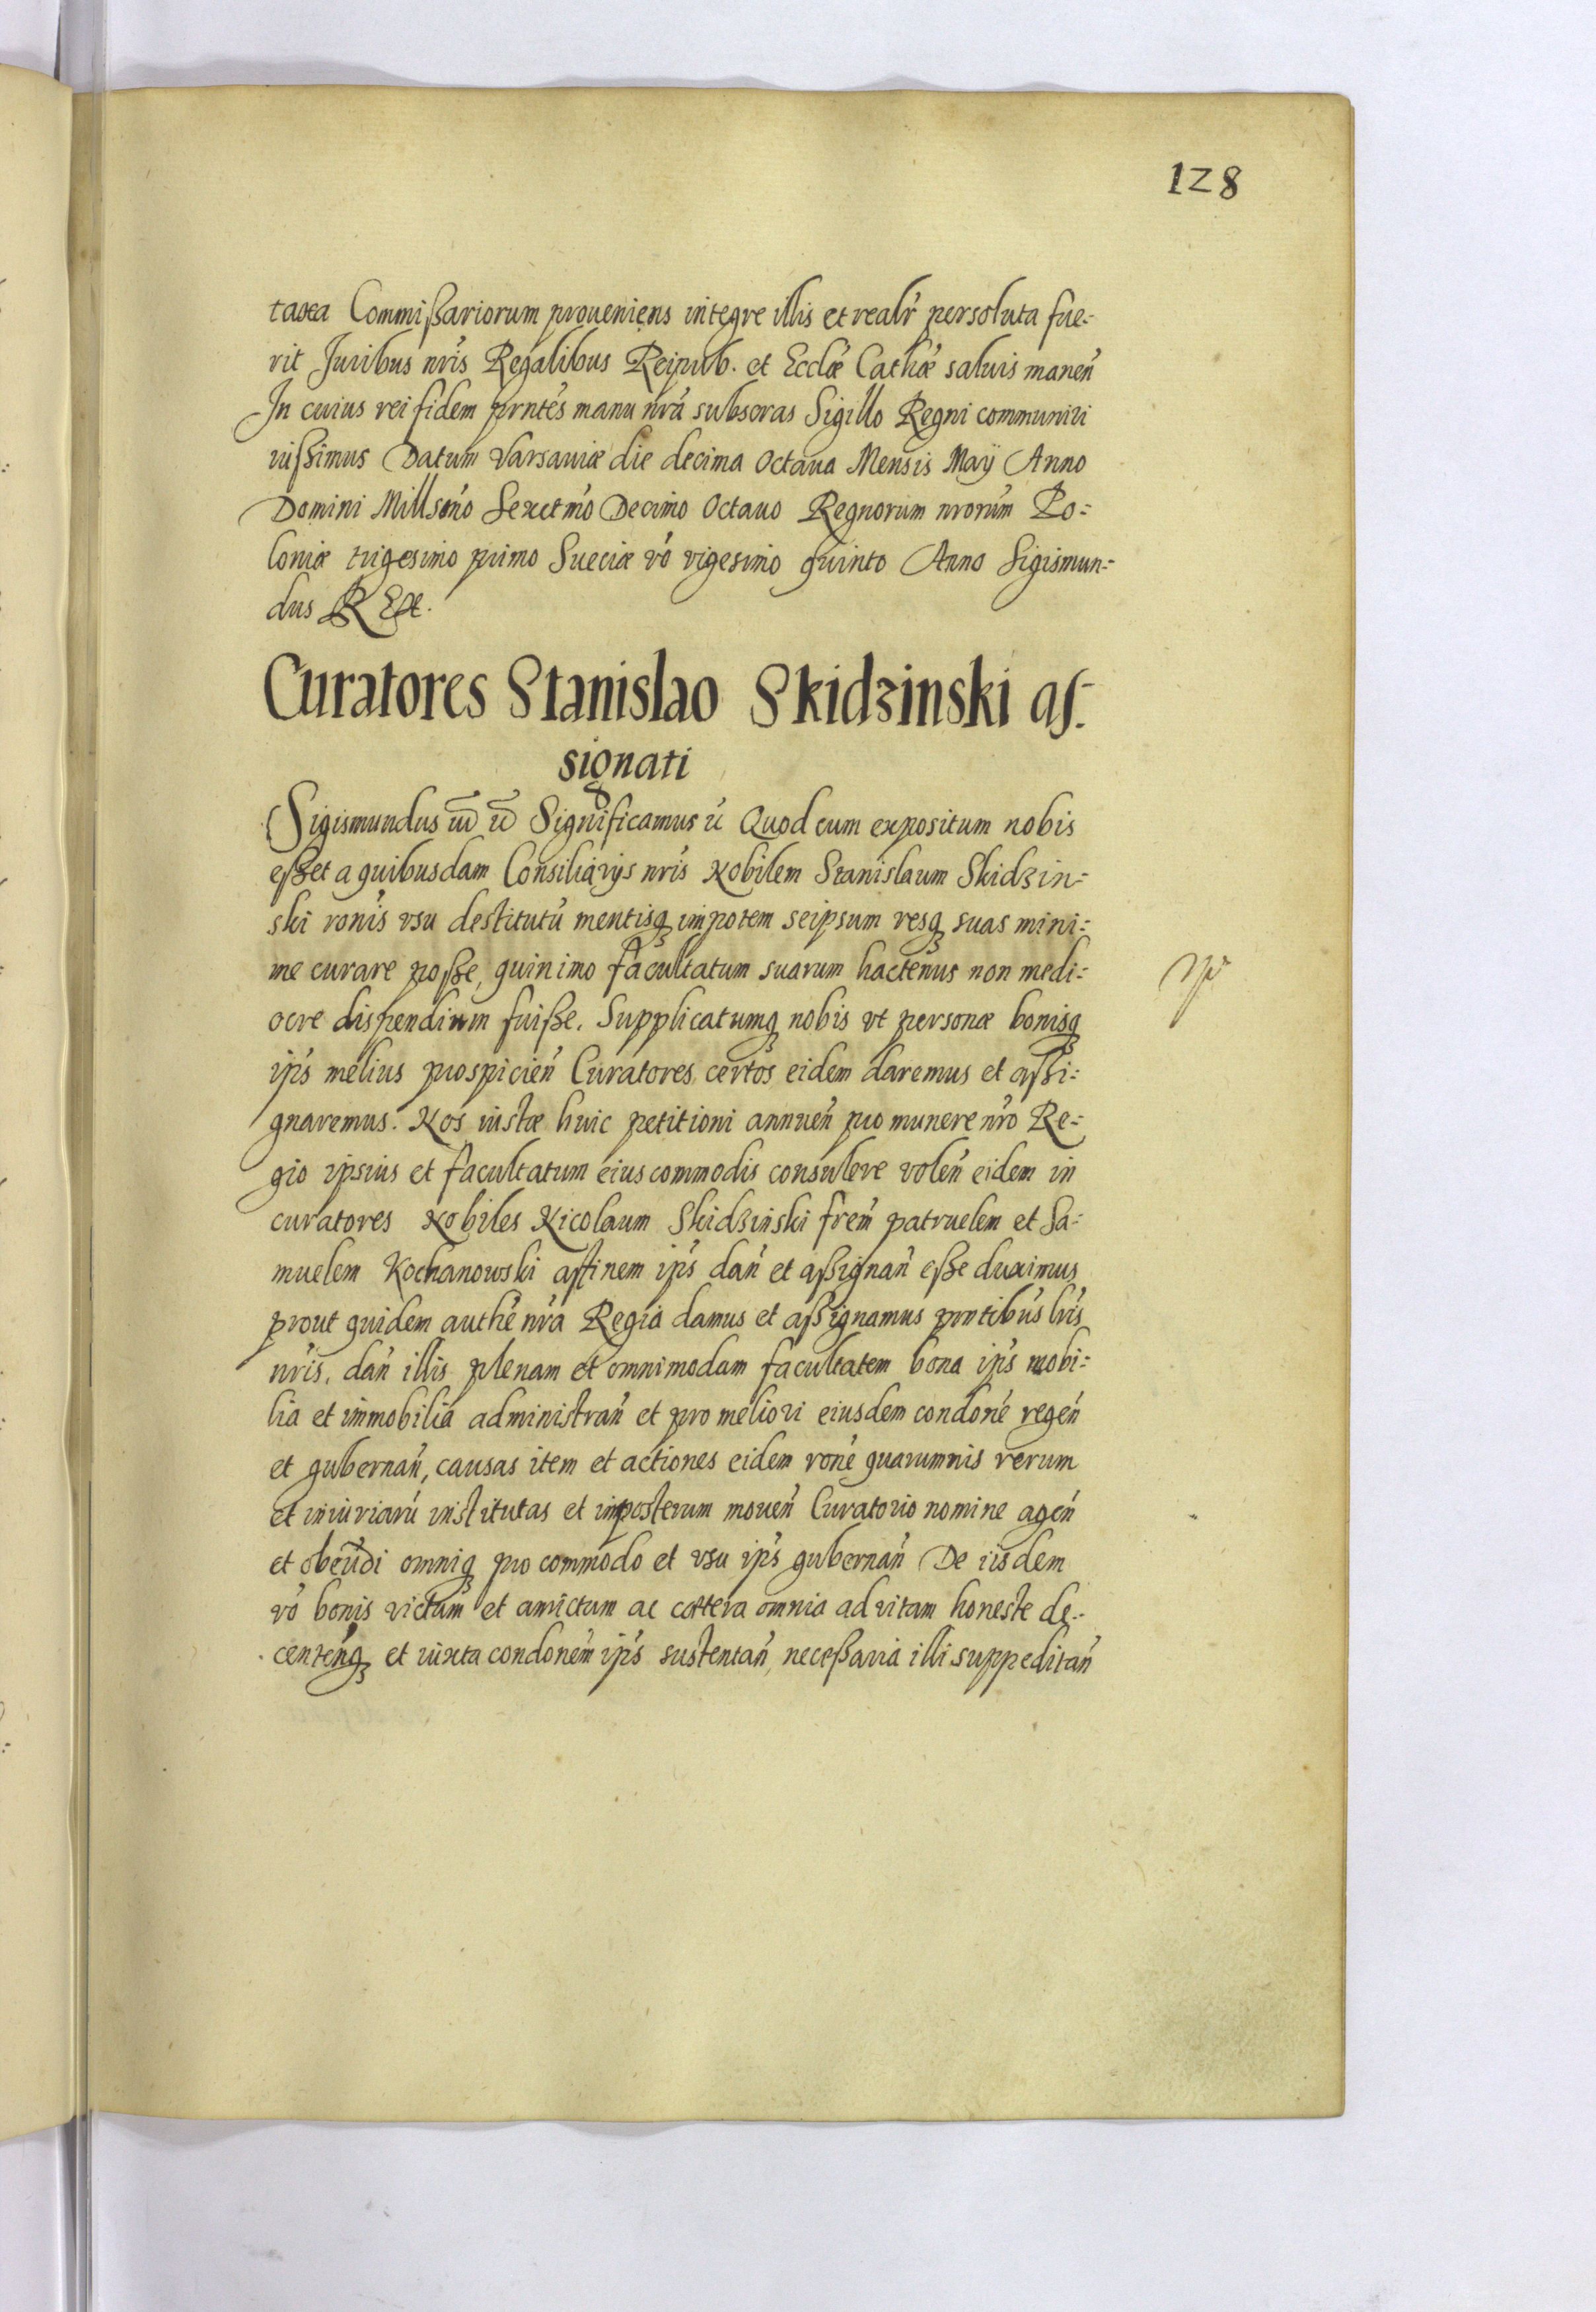 128
taxa Commißariorum proueniens integre illis et realr̃ persoluta fue-
rit Juribus nr̃is Regalibus Reipub. et Eccl̃æ Cath̃æ saluis maneñ
In cuius rei fidem prñtes manu nr̃a subscras Sigillo Regni communiri
iußimus Datum Varsauiæ die decima Octaua Mensis Maÿ Anno
Domini Millsm̃o Sexctm̃o Decimo Octauo Regnorum nrorum̃ Po-
loniæ trigesimo primo Sueciæ võ vigesimo quinto Anno Sigismun-
dus REx.
Curatores Stanislao Skidzinski as-
signati
Sigismundus Significamus Quod cum expositum nobis
eßet a quibusdam Consiliarijs nr̃is Nobilem Stanislaum Skidzin-
ski ronĩs vsu destitutũ mentisq impotem seipsum resq suas mini-
me curare poße, quinimo facultatum suarum hactenus non medi-
ocre dispendium fuiße. Supplicatumq nobis vt personæ bonisq
ip̃s melius prospicieñ Curatores certos eidem daremus et aßi-
gnaremus. Nos iustæ huic petitioni annueñ pro munere nr̃o Re-
gio ipsius et facultatum eius commodis consulere voleñ eidem in
curatores Nobiles Nicolaum Skidzinski frem̃ patruelem et Sa-
muelem Kochanowski affinem ip̃s dañ et aßignañ eße duximus
prout quidem authẽ nr̃a Regia damus et aßignamus prñtibus lr̃is
nr̃is, dañ illis plenam et omnimodam facultatem bona ip̃s mobi-
lia et immobilia administrañ et pro meliori eiusdem condonẽ regeñ
et gubernañ, causas item et actiones eidem ronẽ quarumnis rerum
et iniuriarũ institutas et imposterum moueñ Curatorio nomine ageñ
et obeũdi omniq pro commodo et vsu ip̃s gubernañ De iisdem
võ bonis victum et amictum ac cættera omnia ad vitam honeste de-
centenq̃ et iuxta condonem̃ ip̃s sustentañ, neceßaria illi suppeditañ